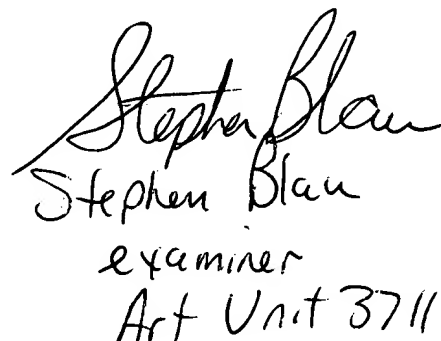 Stephen Blau
Stephen Blau
examiner
Art Unit 3711